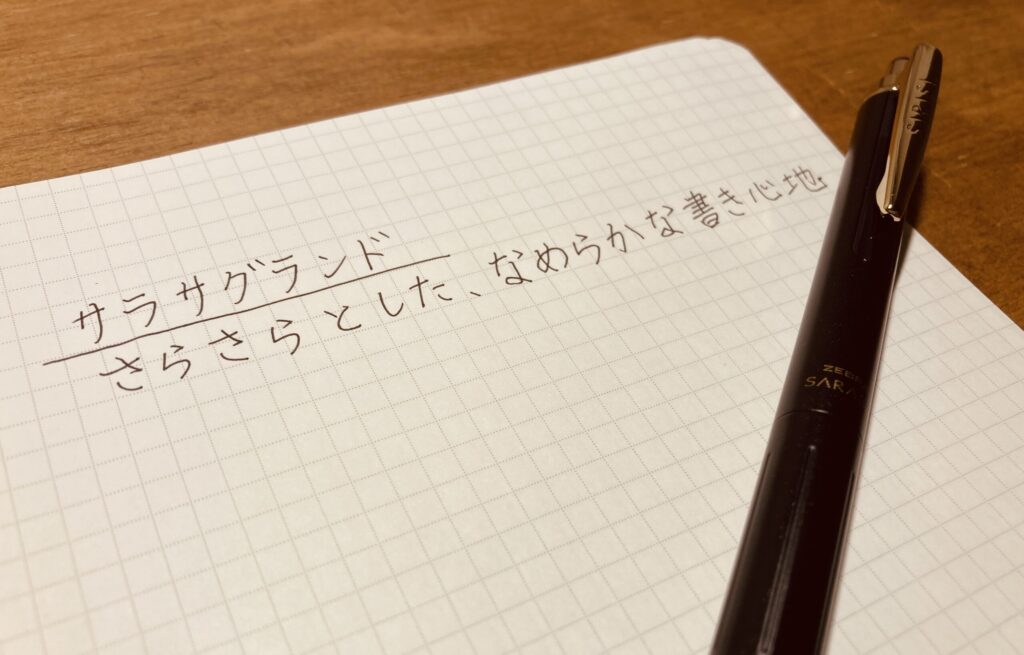 サラサグランド
さらさらとした、なめらかな書き心地